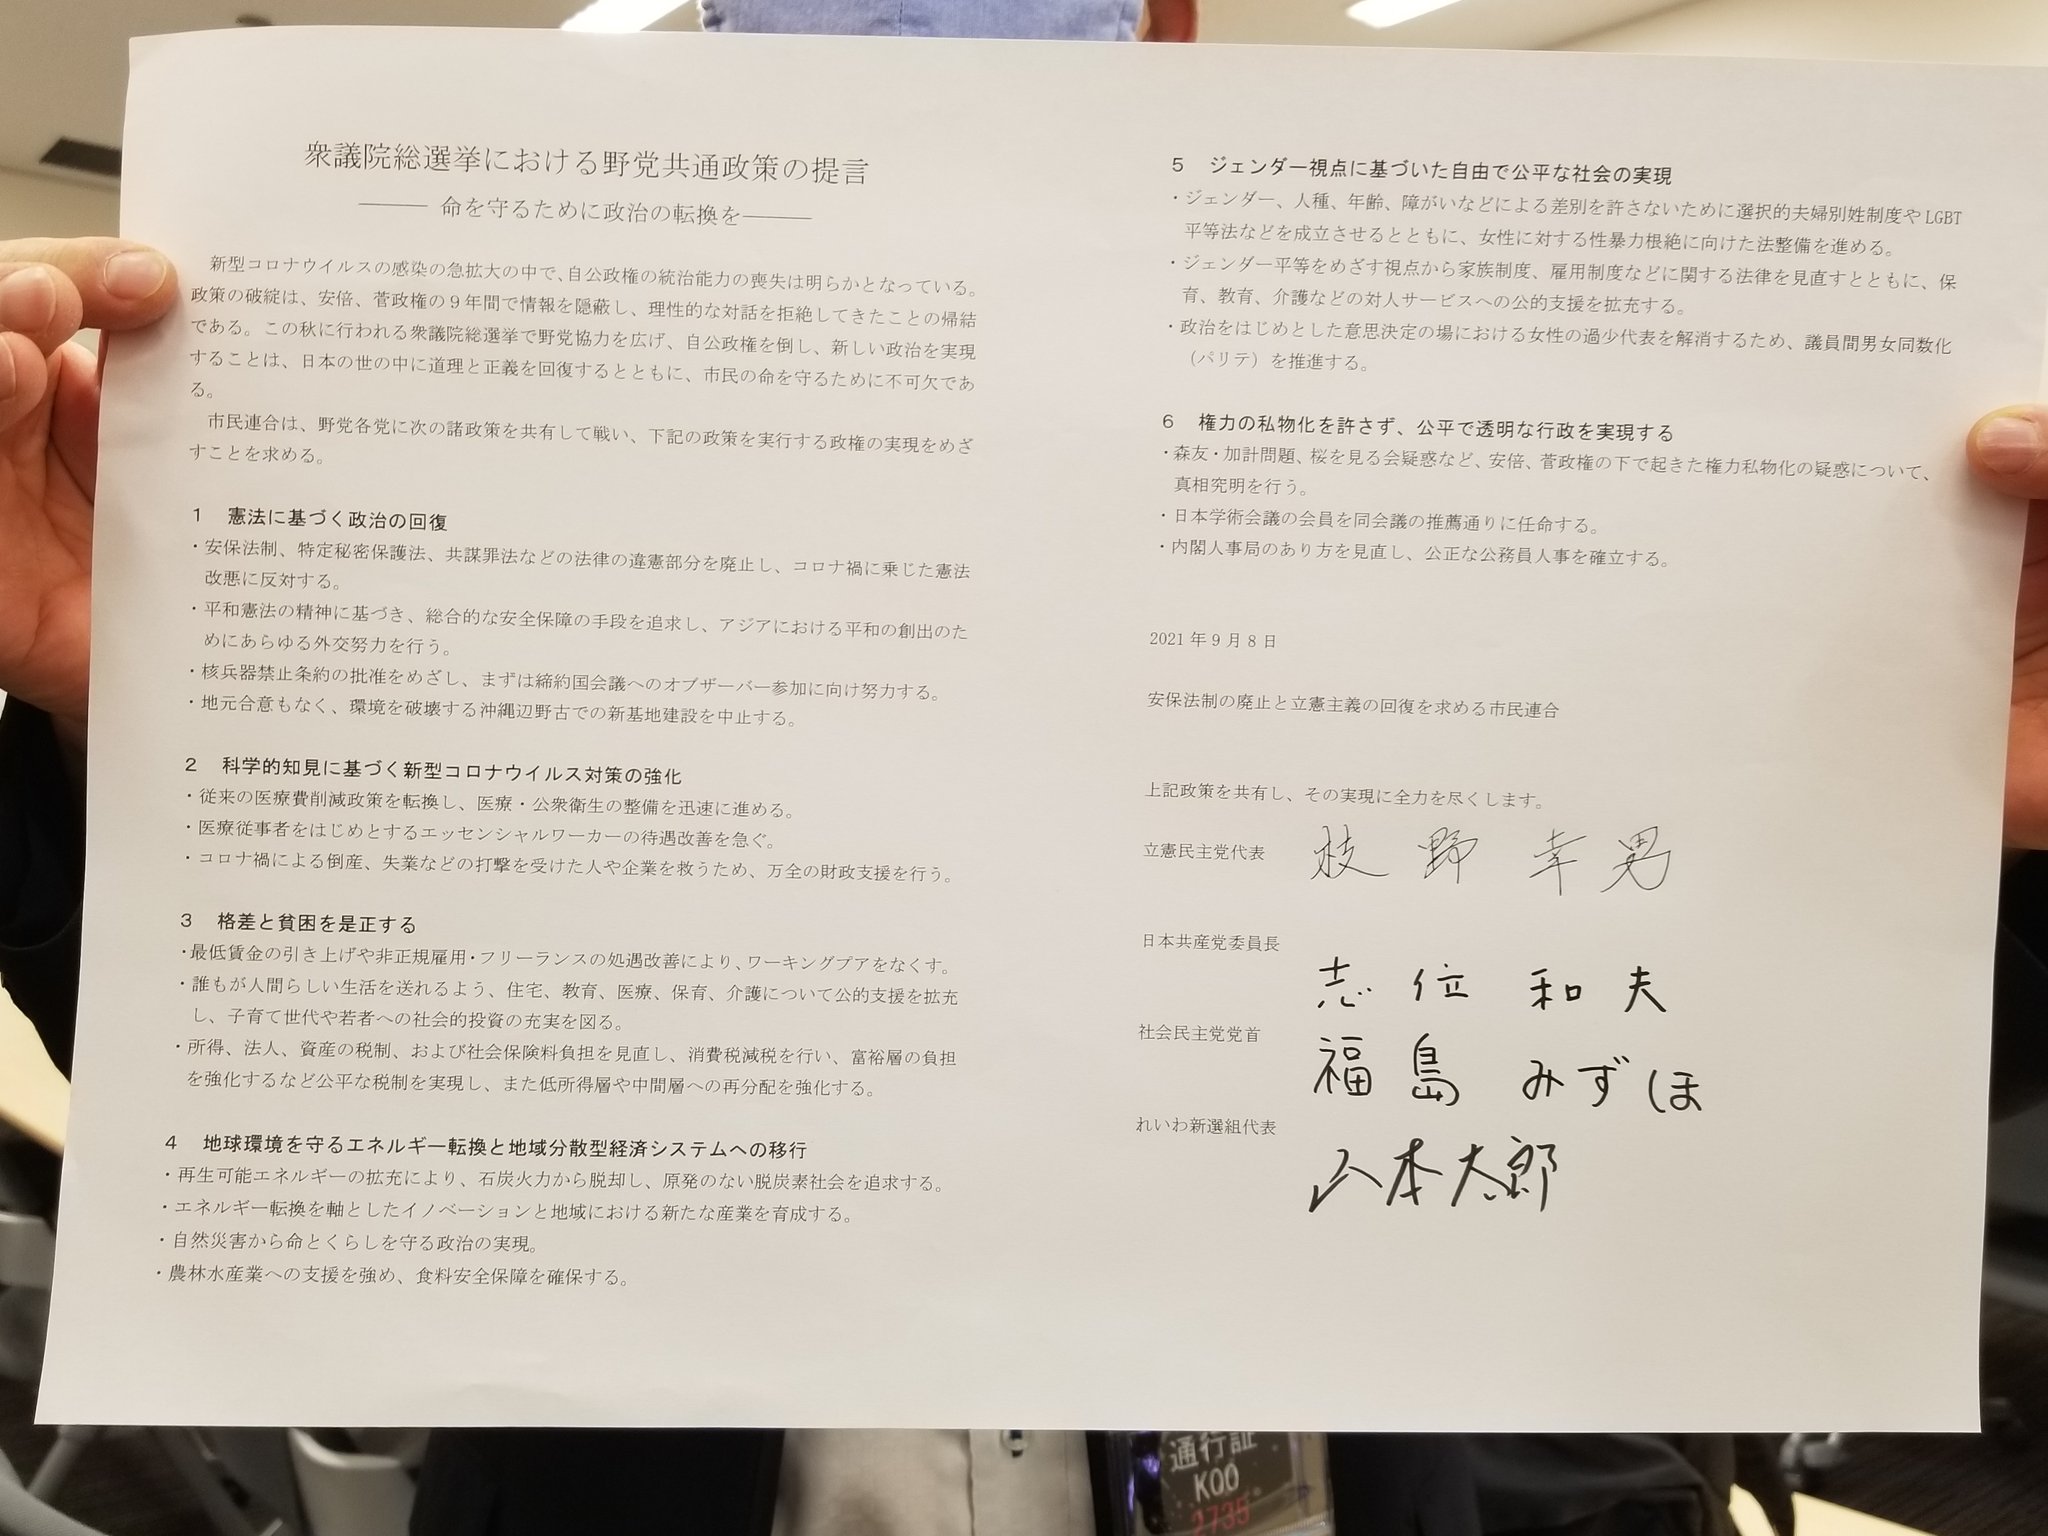 衆議院総選挙における野党共通政策の提言
――― 命を守るために政治の転換を―――
新型コロナウイルスの感染の急拡大の中で、自公政権の統治能力の喪失は明らかとなっている。
政策の破綻は、安倍、菅政権の9年間で情報を隠蔽し、理性的な対話を拒絶してきたことの帰結
である。この秋に行われる衆議院総選挙で野党協力を広げ、自公政権を倒し、新しい政治を実現
することは、日本の世の中に道理と正義を回復するとともに、市民の命を守るために不可欠であ
る。
市民連合は、野党各党に次の諸政策を共有して戦い、下記の政策を実行する政権の実現をめざ
すことを求める。
1 憲法に基づく政治の回復
・安保法制、特定秘密保護法、共謀罪法などの法律の違憲部分を廃止し、コロナ禍に乗じた憲法
改悪に反対する。
・平和憲法の精神に基づき、総合的な安全保障の手段を追求し、アジアにおける平和の創出のた
めにあらゆる外交努力を行う。
・核兵器禁止条約の批准をめざし、まずは締約国会議へのオブザーバー参加に向け努力する。
・地元合意もなく、環境を破壊する沖縄辺野古での新基地建設を中止する。
2 科学的知見に基づく新型コロナウイルス対策の強化
・従来の医療費削減政策を転換し、医療・公衆衛生の整備を迅速に進める。
・医療従事者をはじめとするエッセンシャルワーカーの待遇改善を急ぐ。
・コロナ禍による倒産、失業などの打撃を受けた人や企業を救うため、万全の財政支援を行う。
3 格差と貧困を是正する
・最低賃金の引き上げや非正規雇用・フリーランスの処遇改善により、ワーキングプアをなくす。
・誰もが人間らしい生活を送れるよう、住宅、教育、医療、保育、介護について公的支援を拡充
し、子育て世代や若者への社会的投資の充実を図る。
・所得、法人、資産の税制、および社会保険料負担を見直し、消費税減税を行い、富裕層の負担
を強化するなど公平な税制を実現し、また低所得層や中間層への再分配を強化する。
4 地球環境を守るエネルギー転換と地域分散型経済システムへの移行
・再生可能エネルギーの拡充により、石炭火力から脱却し、原発のない脱炭素社会を追求する。
・エネルギー転換を軸としたイノベーションと地域における新たな産業を育成する。
・自然災害から命とくらしを守る政治の実現。
・農林水産業への支援を強め、食料安全保障を確保する。
5 ジェンダー視点に基づいた自由で公平な社会の実現
・ジェンダー、人種、年齢、障がいなどによる差別を許さないために選択的夫婦別姓制度やLGBT
平等法などを成立させるとともに、女性に対する性暴力根絶に向けた法整備を進める。
・ジェンダー平等をめざす視点から家族制度、雇用制度などに関する法律を見直すとともに、保
育、教育、介護などの対人サービスへの公的支援を拡充する。
・政治をはじめとした意思決定の場における女性の過少代表を解消するため、議員間男女同数化
（パリテ）を推進する。
6 権力の私物化を許さず、公平で透明な行政を実現する
・森友・加計問題、桜を見る会疑惑など、安倍、菅政権の下で起きた権力私物化の疑惑について、
真相究明を行う。
・日本学術会議の会員を同会議の推薦通りに任命する。
・内閣人事局のあり方を見直し、公正な公務員人事を確立する。
2021年9月8日
安保法制の廃止と立憲主義の回復を求める市民連合
上記政策を共有し、その実現に全力を尽くします。
立憲民主党代表 枝野幸男
日本共産党委員長 志位和夫
社会民主党党首 福島みずほ
れいわ新選組代表 山本太郎
通行証
K00
2735